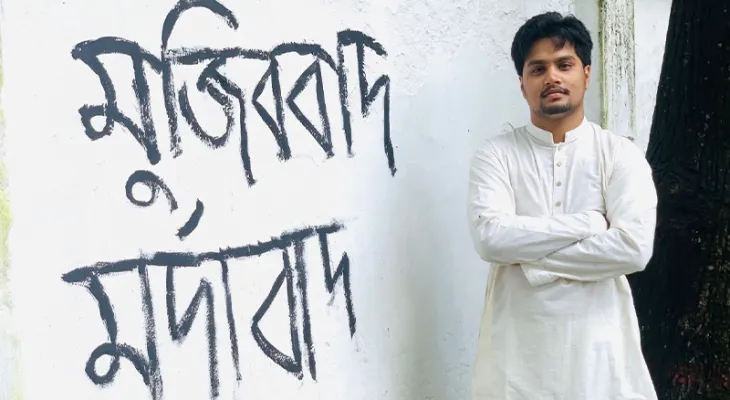 মুজিববাদ
মুর্দাবাদ